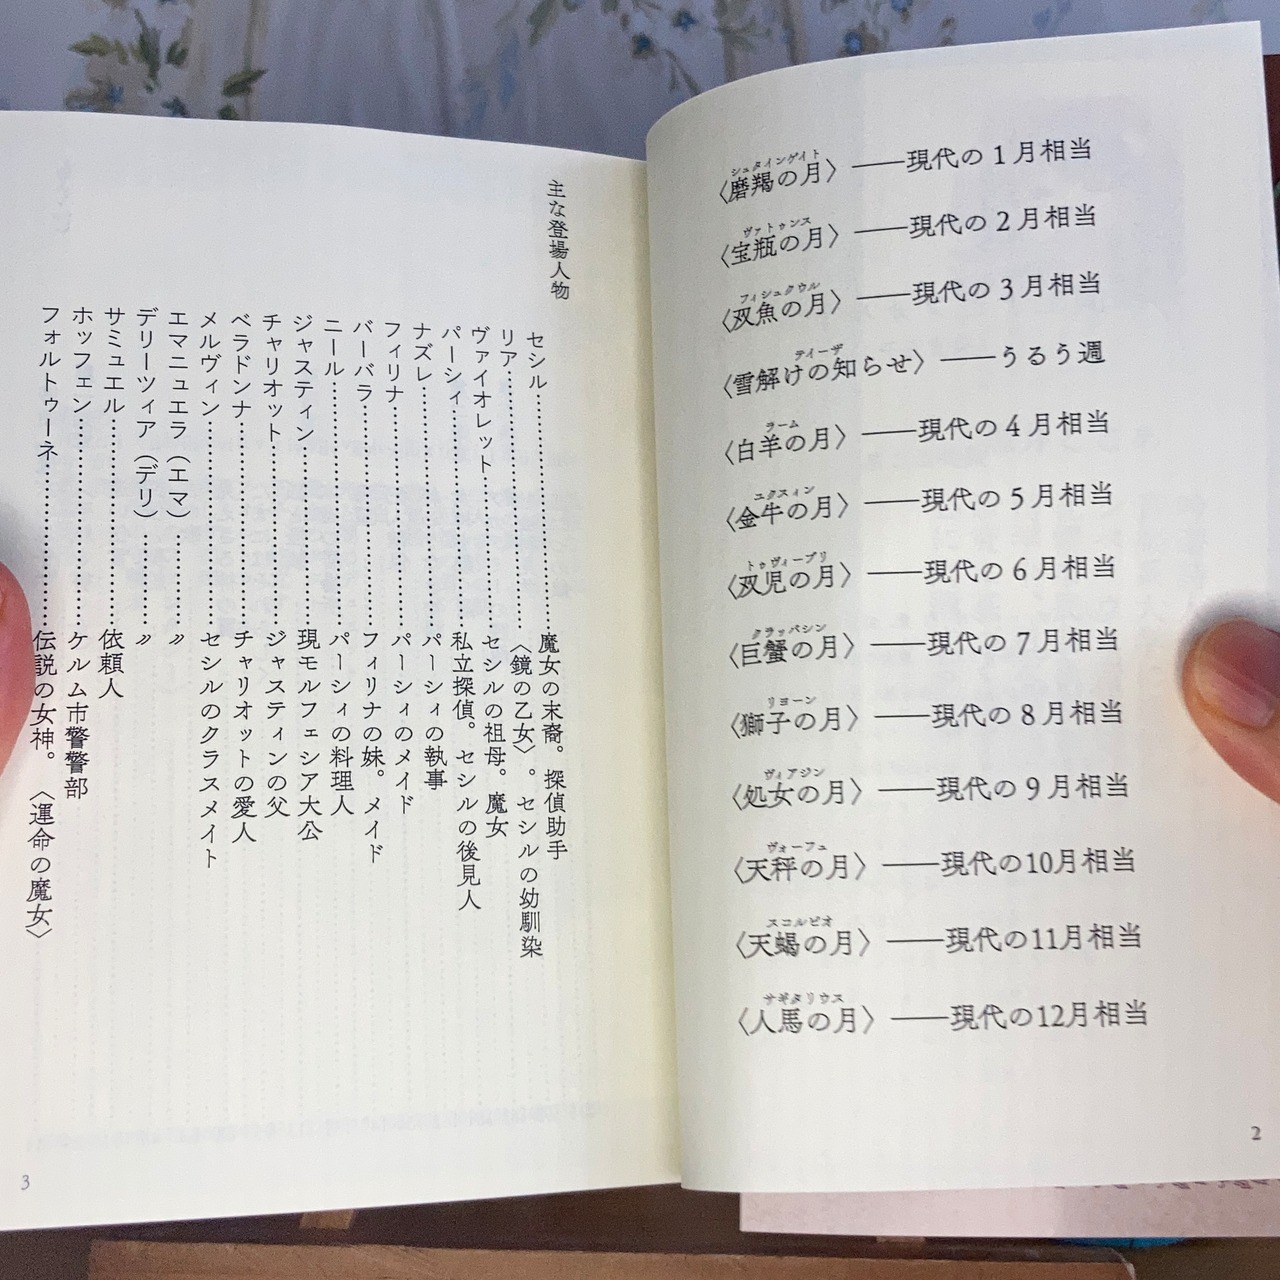 〈磨羯の月〉――現代の1月相当
シュタインゲイト
〈宝瓶の月〉――現代の2月相当
ヴァトゥンス
〈双魚の月〉――現代の3月相当
フィシュクウル
〈雪解けの知らせ〉――うるう週
テイーザ
〈白羊の月〉――現代の4月相当
ラーム
〈金牛の月〉――現代の5月相当
ユクスィン
〈双児の月〉――現代の6月相当
トゥヴィーブリ
〈巨蟹の月〉――現代の7月相当
クラッバシン
〈獅子の月〉――現代の8月相当
リヨーン
〈処女の月〉――現代の9月相当
ヴィアジン
〈天秤の月〉――現代の10月相当
ヴォーフュ
〈天蝎の月〉――現代の11月相当
スコルピオ
〈人馬の月〉――現代の12月相当
サギタリウス
2
主な登場人物
セシル……………………魔女の末裔。探偵助手
リア……………………〈鏡の乙女〉。セシルの幼馴染
ヴァイオレット……………セシルの祖母。魔女
パーシィ…………………私立探偵。セシルの後見人
ナズレ……………………パーシィの執事
フィリナ…………………パーシィのメイド
バーバラ…………………フィリナの妹。メイド
ニール……………………パーシィの料理人
ジャスティン……………現モルフェシア大公
チャリオット……………ジャスティンの父
ベラドンナ………………チャリオットの愛人
メルヴィン………………セシルのクラスメイト
エマニュエラ（エマ）……〃
デリーツィア（デリ）……〃
サミュエル………………依頼人
ホッフェン………………ケルム市警警部
フォルトゥーネ…………伝説の女神。〈運命の魔女〉
3